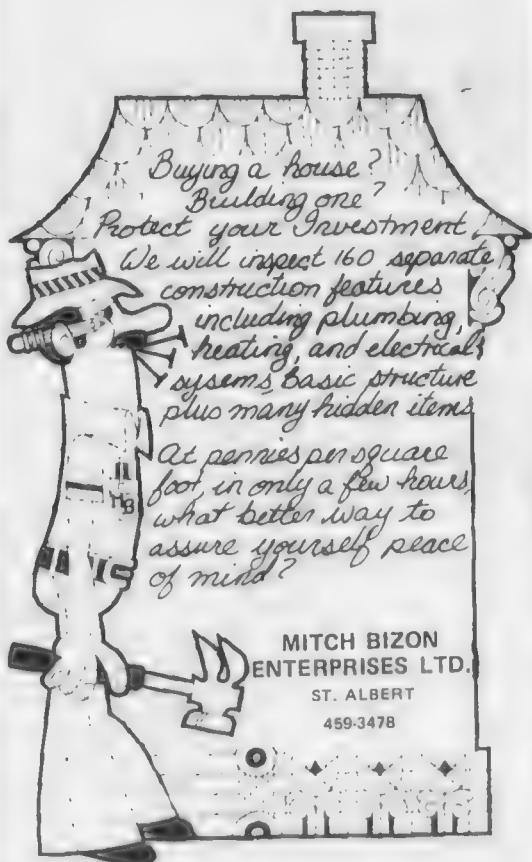 Buying a house?
Building one?
Protect your Investment
We will inspect 160 separate
construction features
including plumbing,
heating, and electrical
sysems, basic structure
plus many hidden items
At pennies per square
foot, in only a few hours,
what better way to
assure yourself peace
of mind?
MB
MITCH BIZON
ENTERPRISES LTD.
ST. ALBERT
459-3478